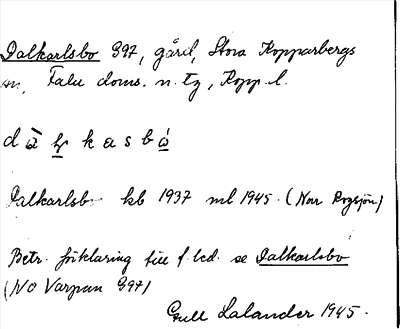 Dalkarlsbo G97, gård, Stora Kopparbergs
sn, Falu doms. n. tg, Kopp. l.
Dalkarlsb kb 1937 ml 1945. (Norr Rogsjön)
Betr. förklaring till f. led. se Dalkarlsbo
(NO Varpan G97)
Gull Lalander 1945.